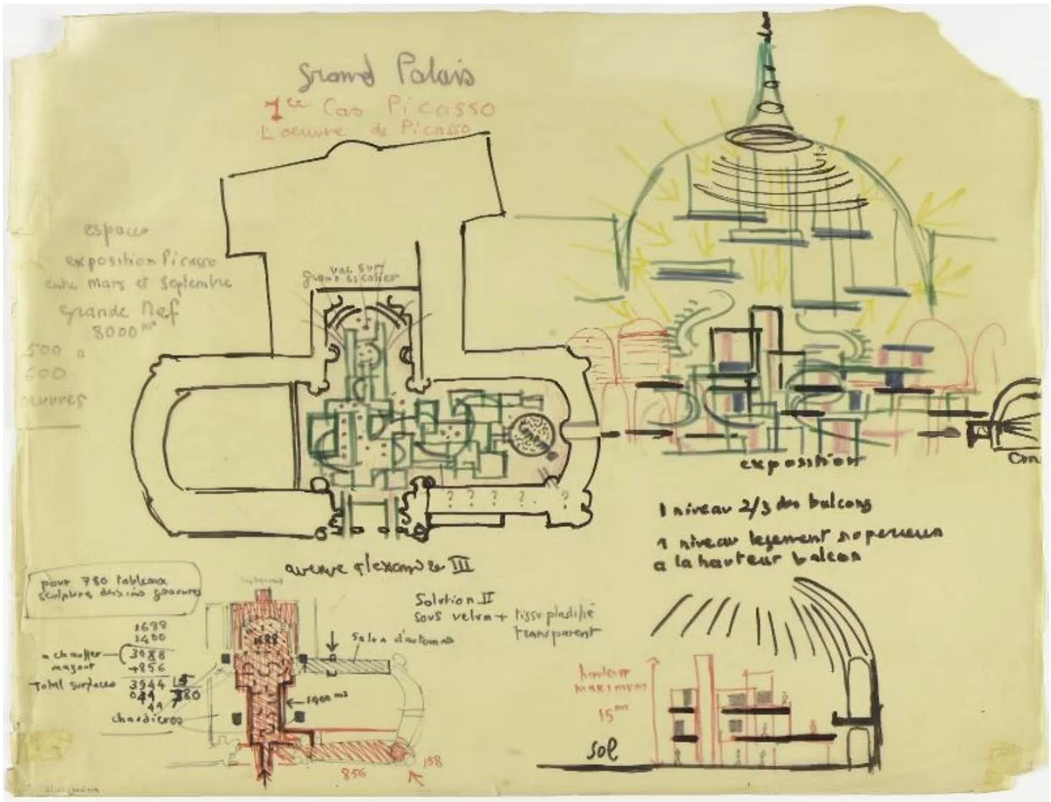 Grand Palais
1er Cas Picasso
L'oeuvre de Picasso
espace
exposition Picasso
entre Mars et Septembre
grande Nef
8000 m²
500 a
600
oeuvres
vue sur
grand escalier
? ? ? ? . ?
exposition
1 niveau 2/3 des balcons
1 niveau legement superieur
a la hauteur balcon
avenue Alexandre III
pour 780 tableaux
sculptures dessins gravures
1688
1400
3088
+856
a chauffer
mazout
Total surfaces 3944
chaudieres
1688
1400 m²
856
158
Solution II
sous velum + tissu plastifié
transparent
Salon d'automne
hauteur
maximum
15 m
sol